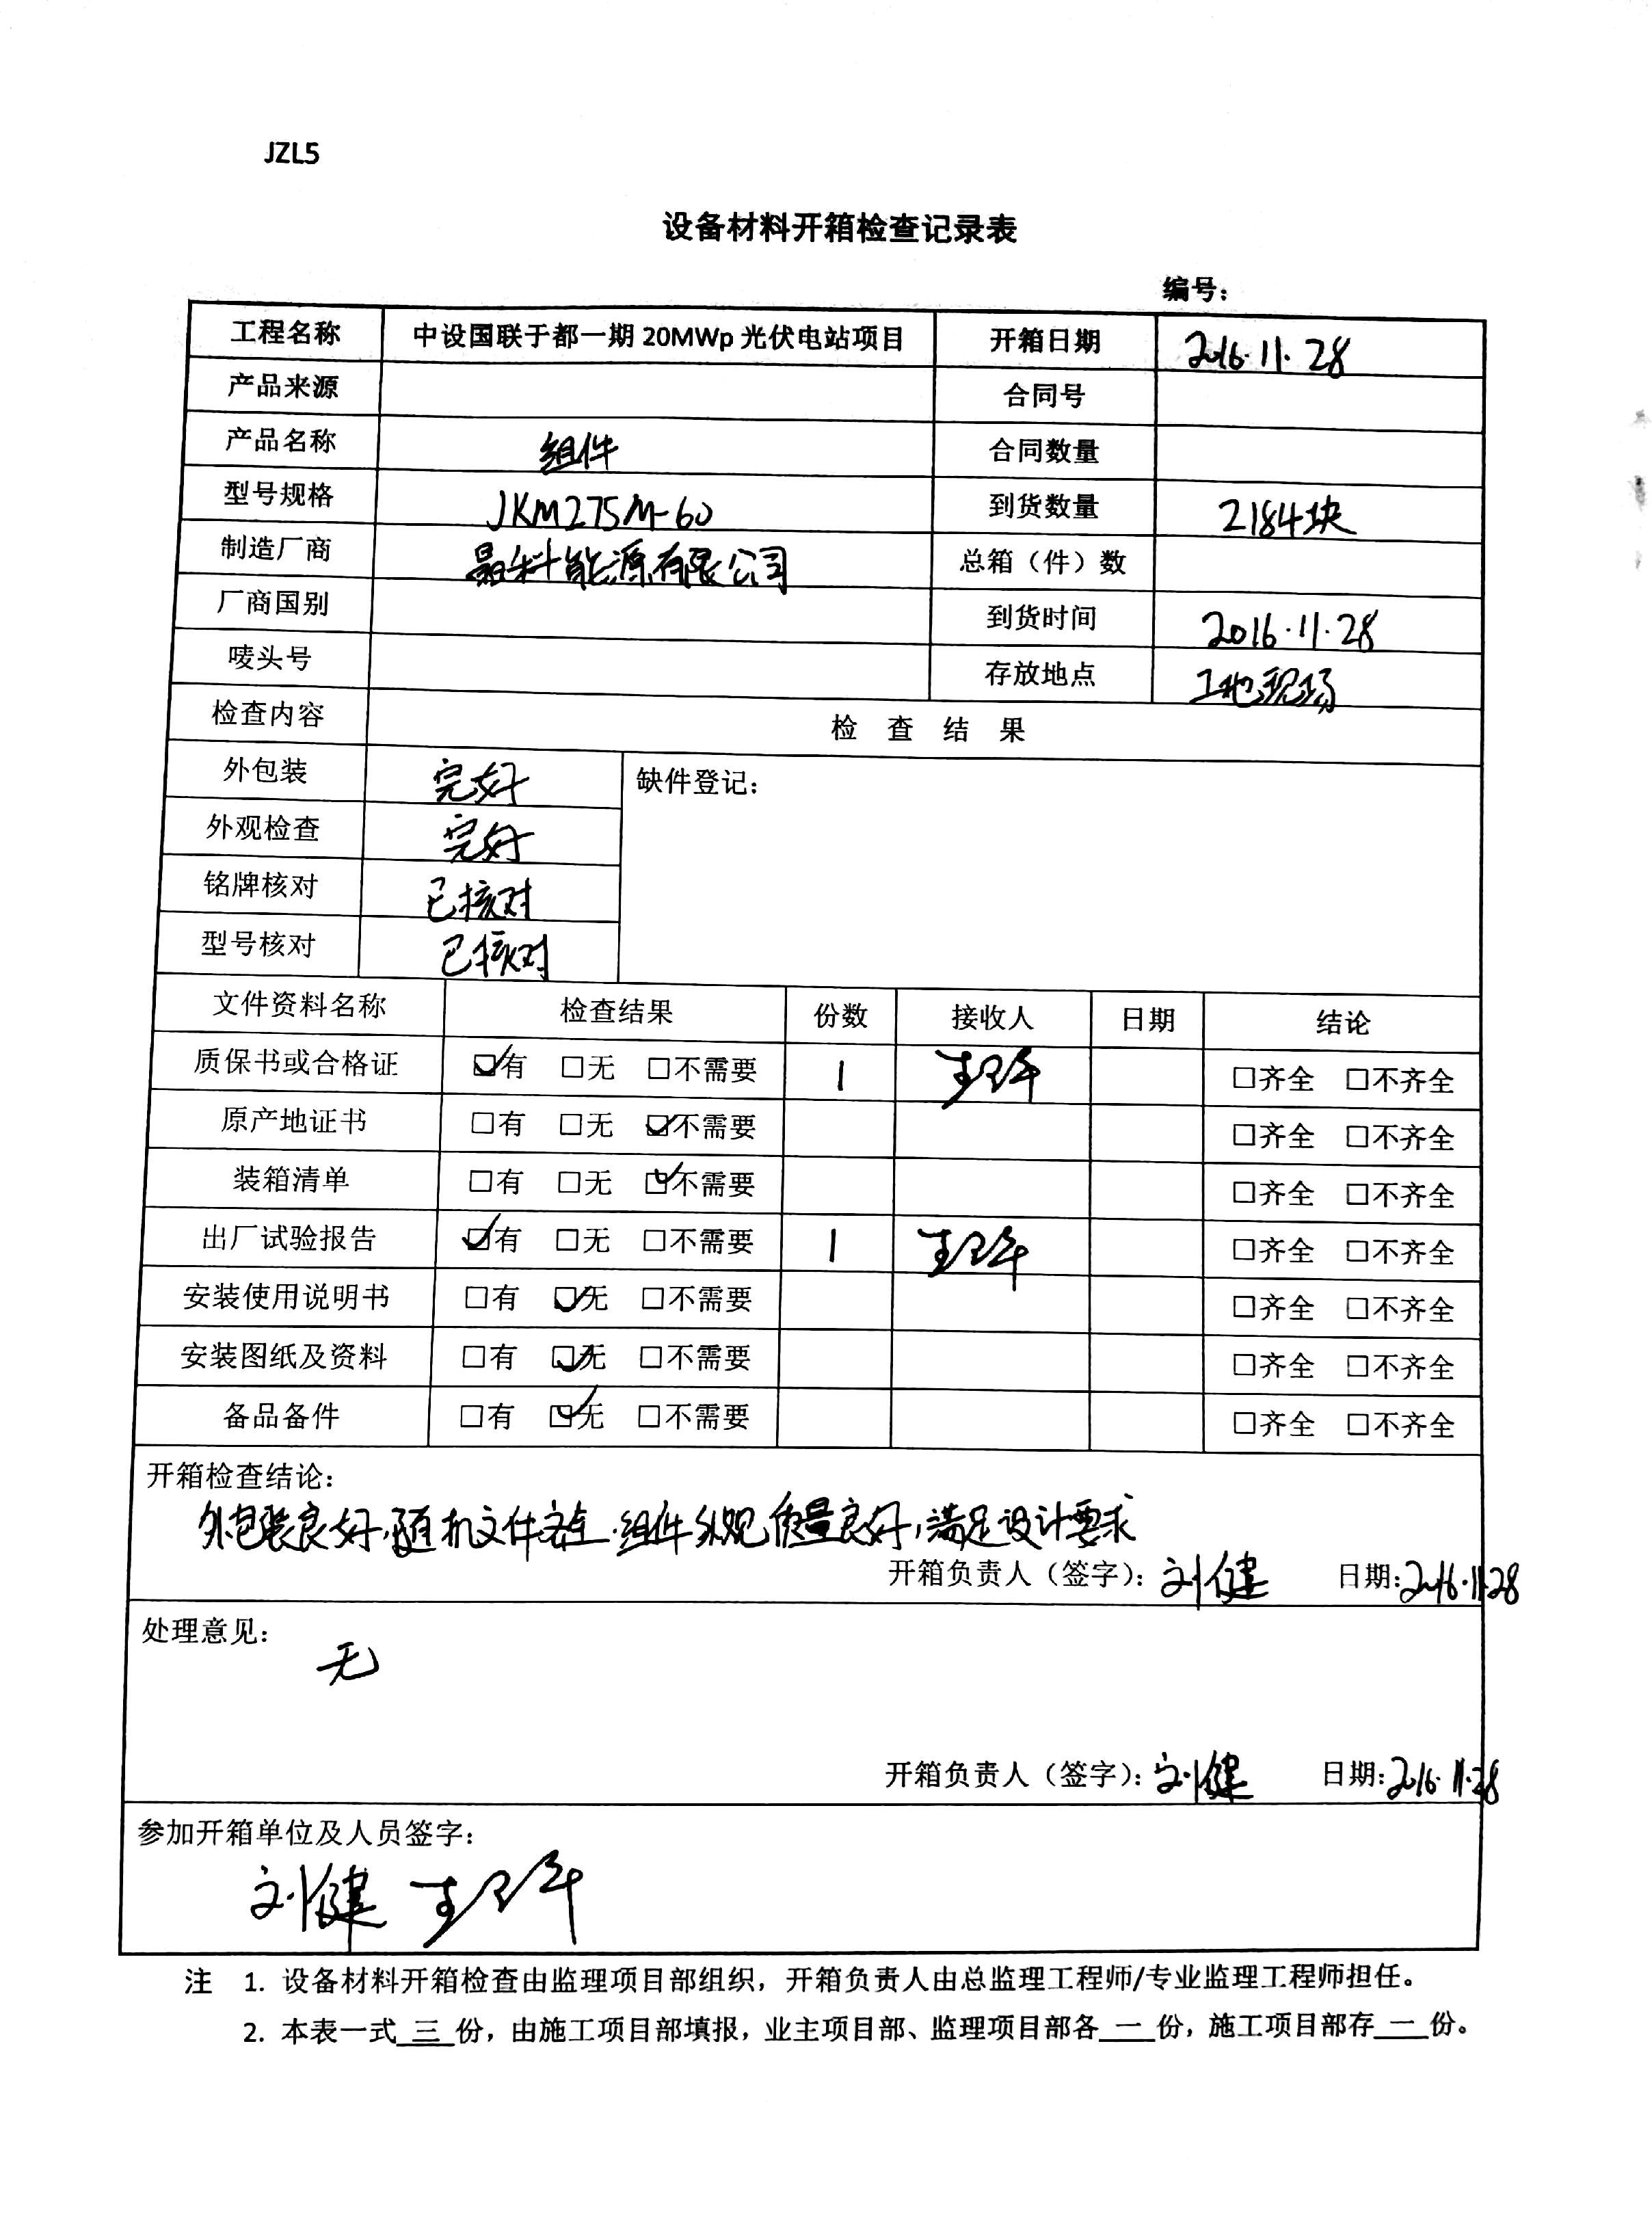 JZL5
设备材料开箱检查记录表
编号：
工程名称 中设国联于都一期 20MWp 光伏电站项目 开箱日期 2016.11.28
产品来源 合同号
产品名称 组件 合同数量
型号规格 JKM275M-60 到货数量 2184块
制造厂商 晶科能源有限公司 总箱（件）数
厂商国别 到货时间 2016.11.28
唛头号 存放地点 工地现场
检查内容 检 查 结 果
外包装 完好 缺件登记：
外观检查 完好
铭牌核对 已核对
型号核对 已核对
文件资料名称 检查结果 份数 接收人 日期 结论
质保书或合格证 ☑有 □无 □不需要 1 □齐全 □不齐全
原产地证书 □有 □无 ☑不需要 □齐全 □不齐全
装箱清单 □有 □无 ☑不需要 □齐全 □不齐全
出厂试验报告 ☑有 □无 □不需要 1 □齐全 □不齐全
安装使用说明书 □有 ☑无 □不需要 □齐全 □不齐全
安装图纸及资料 □有 ☑无 □不需要 □齐全 □不齐全
备品备件 □有 ☑无 □不需要 □齐全 □不齐全
开箱检查结论：
外包装良好，随机文件齐全，组件外观质量良好，满足设计要求
开箱负责人（签字）：刘健 日期：2016.11.28
处理意见：
无
开箱负责人（签字）：刘健 日期：2016.11.28
参加开箱单位及人员签字：
刘健
注 1. 设备材料开箱检查由监理项目部组织，开箱负责人由总监理工程师/专业监理工程师担任。
2. 本表一式 三 份，由施工项目部填报，业主项目部、监理项目部各 一 份，施工项目部存 一 份。